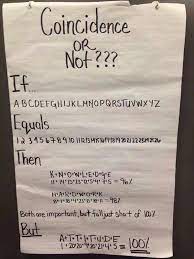 Coincidence
OR
Not???
If...
ABCDEFGHIJKLMNOPQRSTUVWXYZ
Equals
1 2 3 4 5 6 7 8 9 10 11 12 13 14 15 16 17 18 19 20 21 22 23 24 25 26
Then
K+N+O+W+L+E+D+G+E
11+14+15+23+12+5+4+7+5 = 96%
H+A+R+D+W+O+R+K
8+1+18+4+23+15+18+11 = 98%
Both are important, but fall just short of 100%
But
A+T+T+I+T+U+D+E
1+20+20+9+20+21+4+5 = 100%